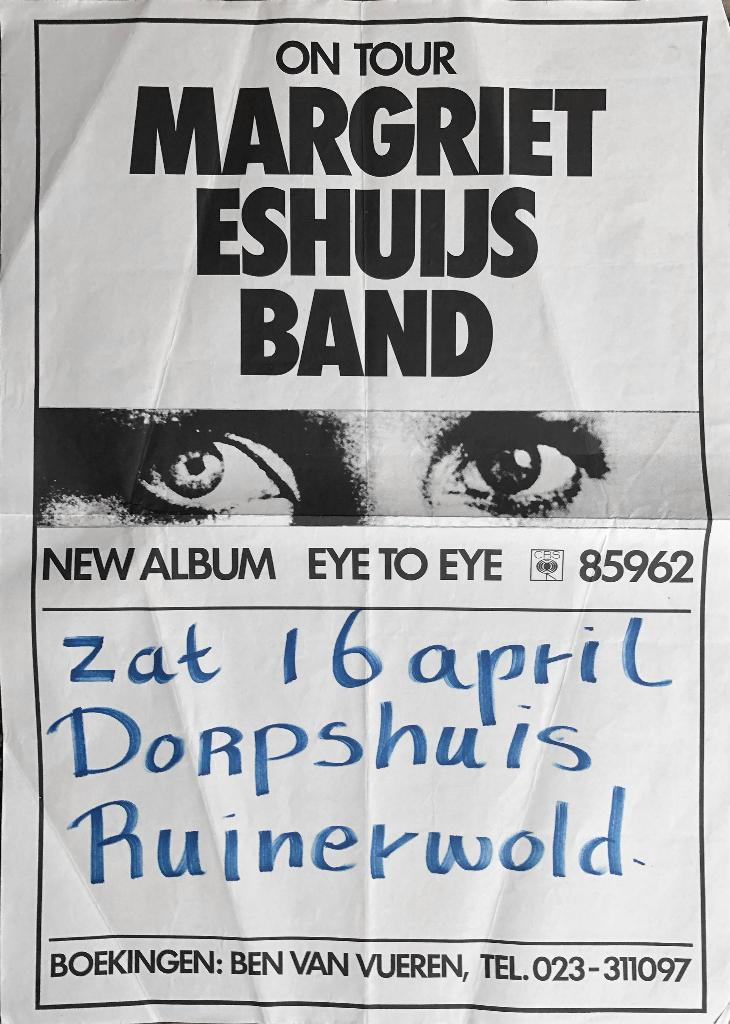 ON TOUR
MARGRIET
ESHUIJS
BAND
NEW ALBUM EYE TO EYE CBS 85962
zat 16 april
Dorpshuis
Ruinerwold.
BOEKINGEN: BEN VAN VUEREN, TEL. 023-311097